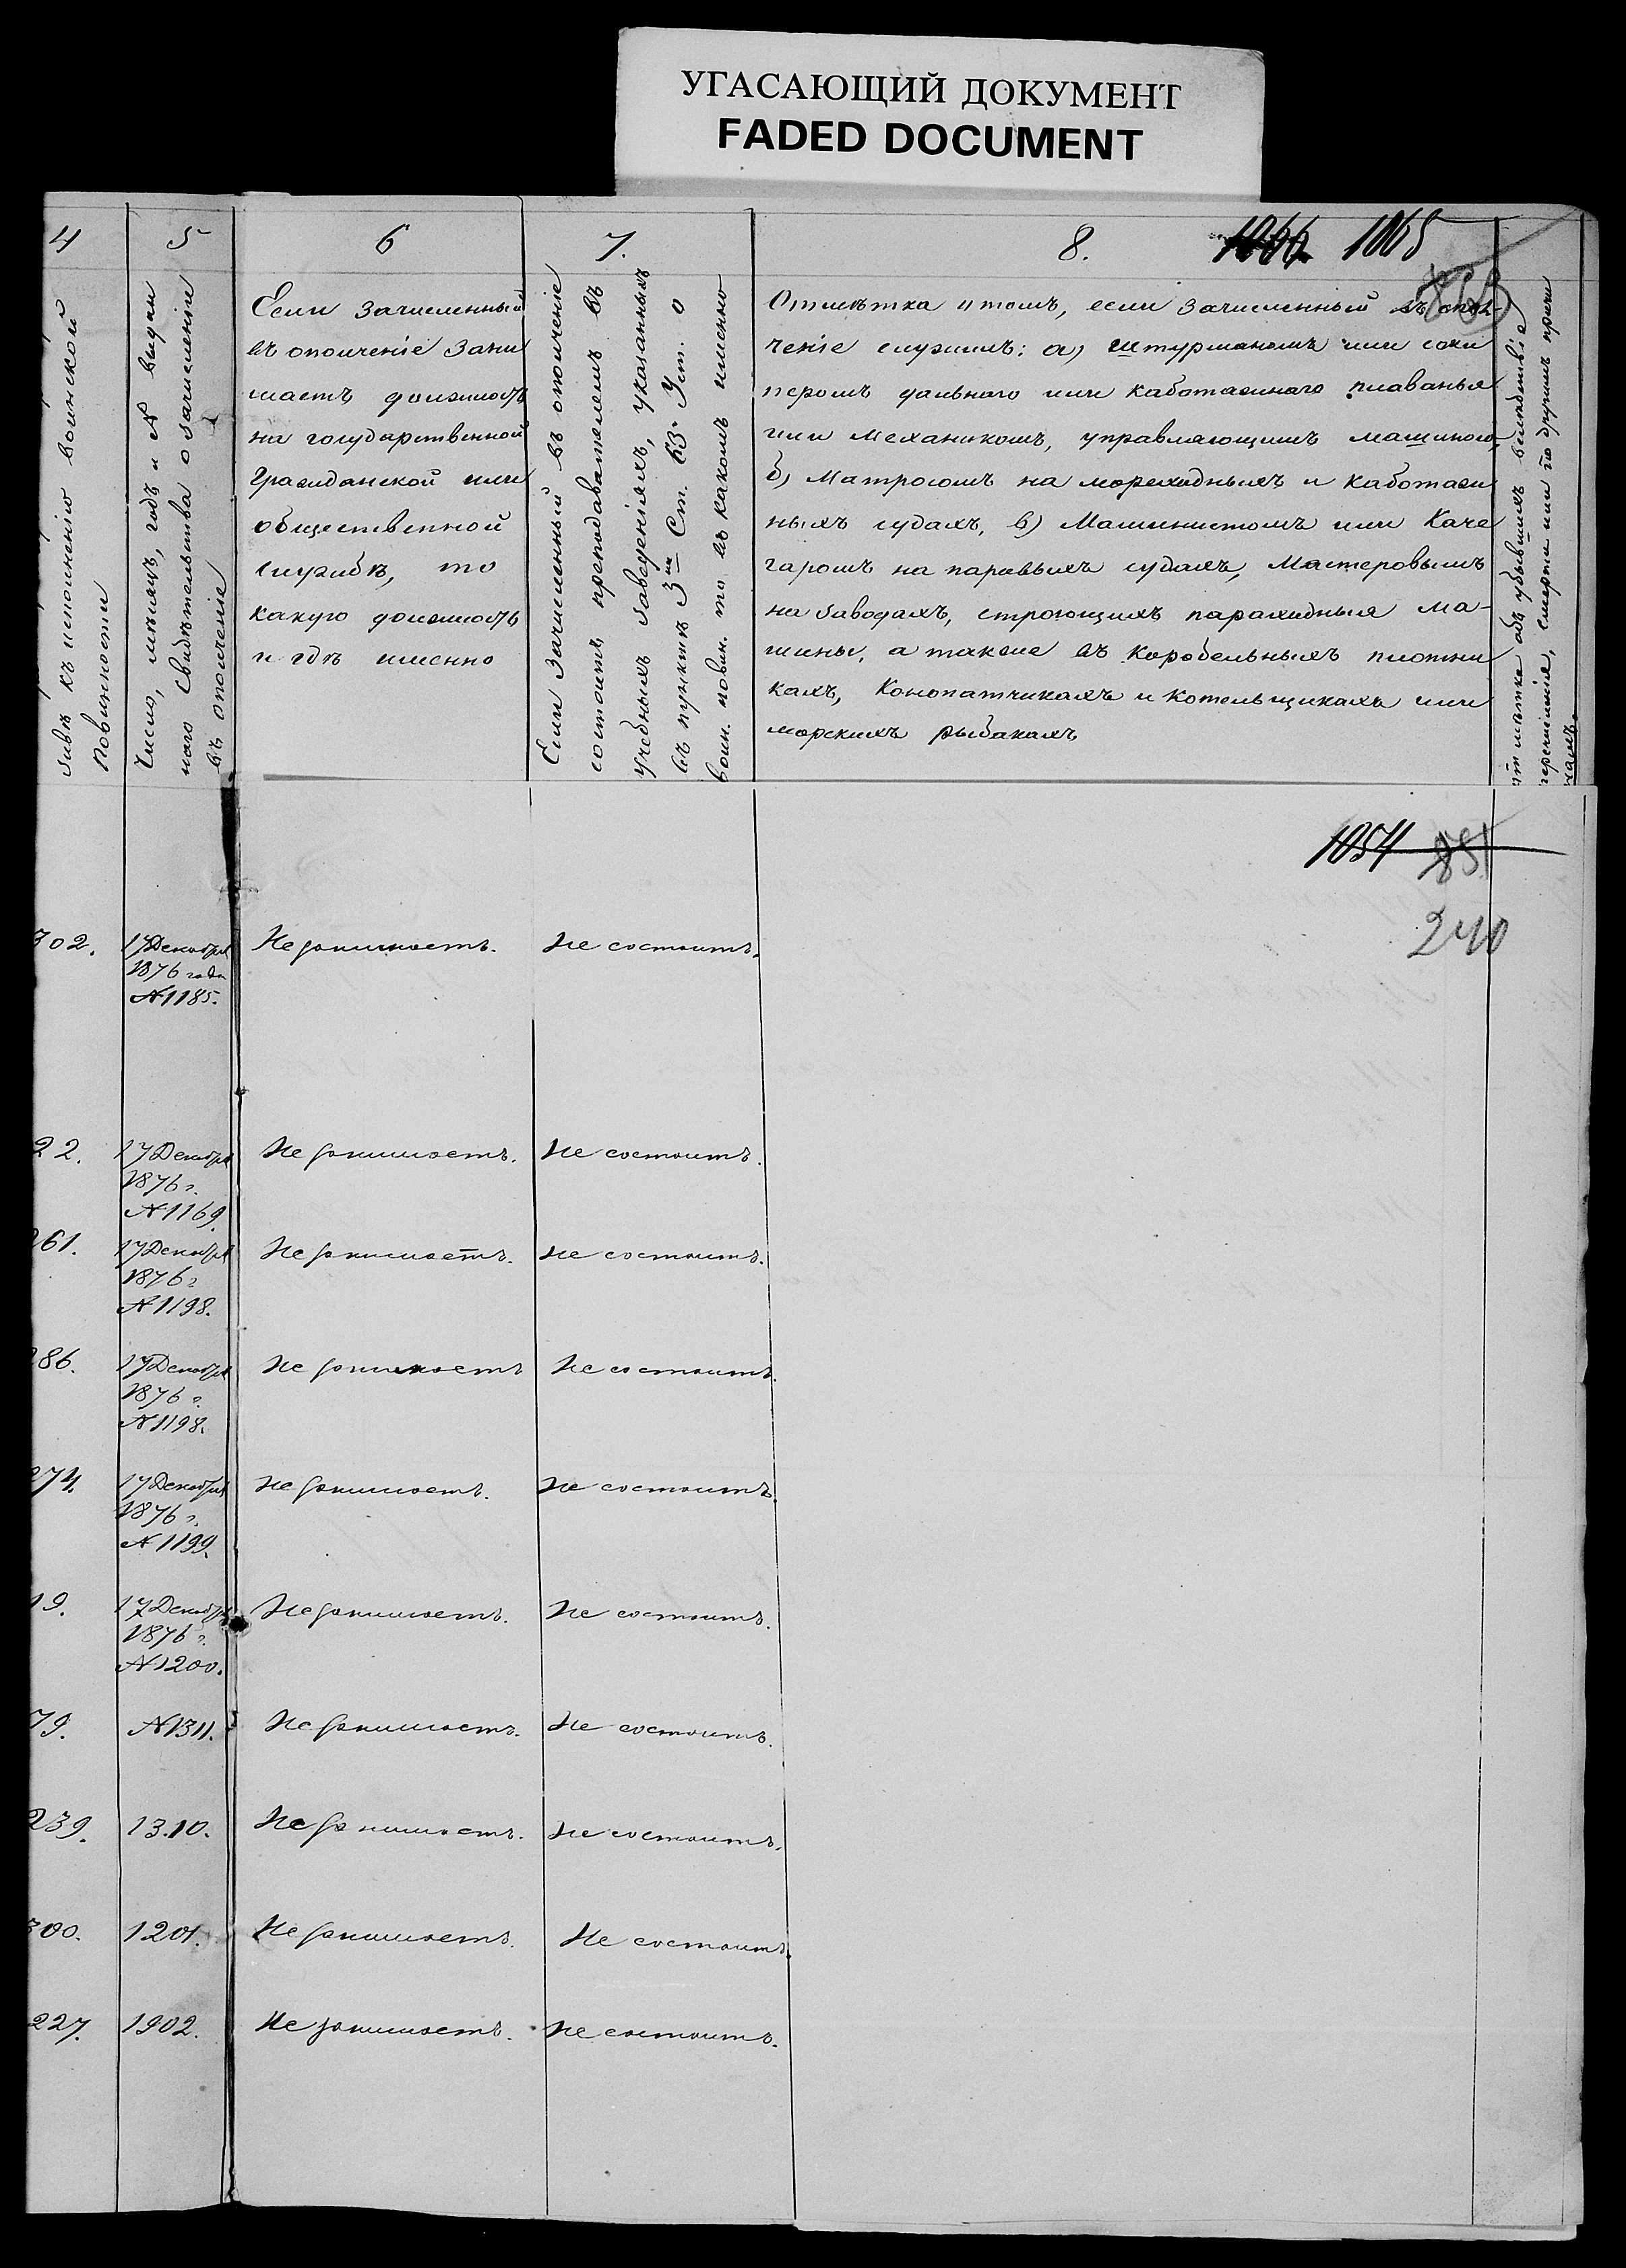 УГАСАЮЩИЙ ДОКУМЕНТ
FADED DOCUMENT
4
5
6
7.
8.
1066. 1065
зывѣ къ исполненію воинской
повинности
Число, мѣсяцъ, годъ и № выдан
наго свидѣтельства о зачисленіи
въ ополченіе
Если зачисленный
въ ополченіе зани
маетъ должность
на государственной
Гражданской или
общественной
службѣ, то
какую должность
и гдѣ именно
Если зачисленный въ ополченіе
состоитъ преподавателемъ въ
учебныхъ заведеніяхъ, указанныхъ
въ пунктѣ 3мъ Ст. 63. Уст. о
воин. повин. то въ какомъ именно
Отмѣтка о томъ, если зачисленный въ опол-
ченіе служитъ: а) штурманомъ или сожи
перомъ дальнаго или каботажнаго плаванья
или механикомъ, управляющимъ машиною,
б) Матросомъ на мореходныхъ и каботаж
ныхъ судахъ, в) Машинистомъ или Коче
гаромъ на паравыхъ судахъ, Мастеровымъ
на заводахъ, строющихъ параходныя ма-
шины, а также въ коробельныхъ плотни
кахъ, Конопатчикахъ и котельщикахъ или
морскихъ рыбакахъ
мѣтка объ убывшихъ вслѣдствіе
перечисленія, смерти или по другимъ причи
намъ.
1054 851
240
302. 17 Декабря Не занимаетъ. Не состоитъ.
1876 года
№ 1185.
22. 17 Декабря Не занимаетъ. Не состоитъ.
1876 г.
№ 1169.
261. 17 Декабря Не занимаетъ. Не состоитъ.
1876 г.
№ 1198.
286. 17 Декабря Не занимаетъ Не состоитъ.
1876 г.
№ 1198.
274. 17 Декабря Не занимаетъ. Не состоитъ.
1876 г.
№ 1199.
19. 17 Декабря Не занимаетъ. Не состоитъ.
1876 г.
№ 1200.
79. № 1311. Не занимаетъ. Не состоитъ.
239. 13.10. Не занимаетъ. Не состоитъ.
300. 1201. Не занимаетъ. Не состоитъ.
227. 1902. Не занимаетъ. Не состоитъ.